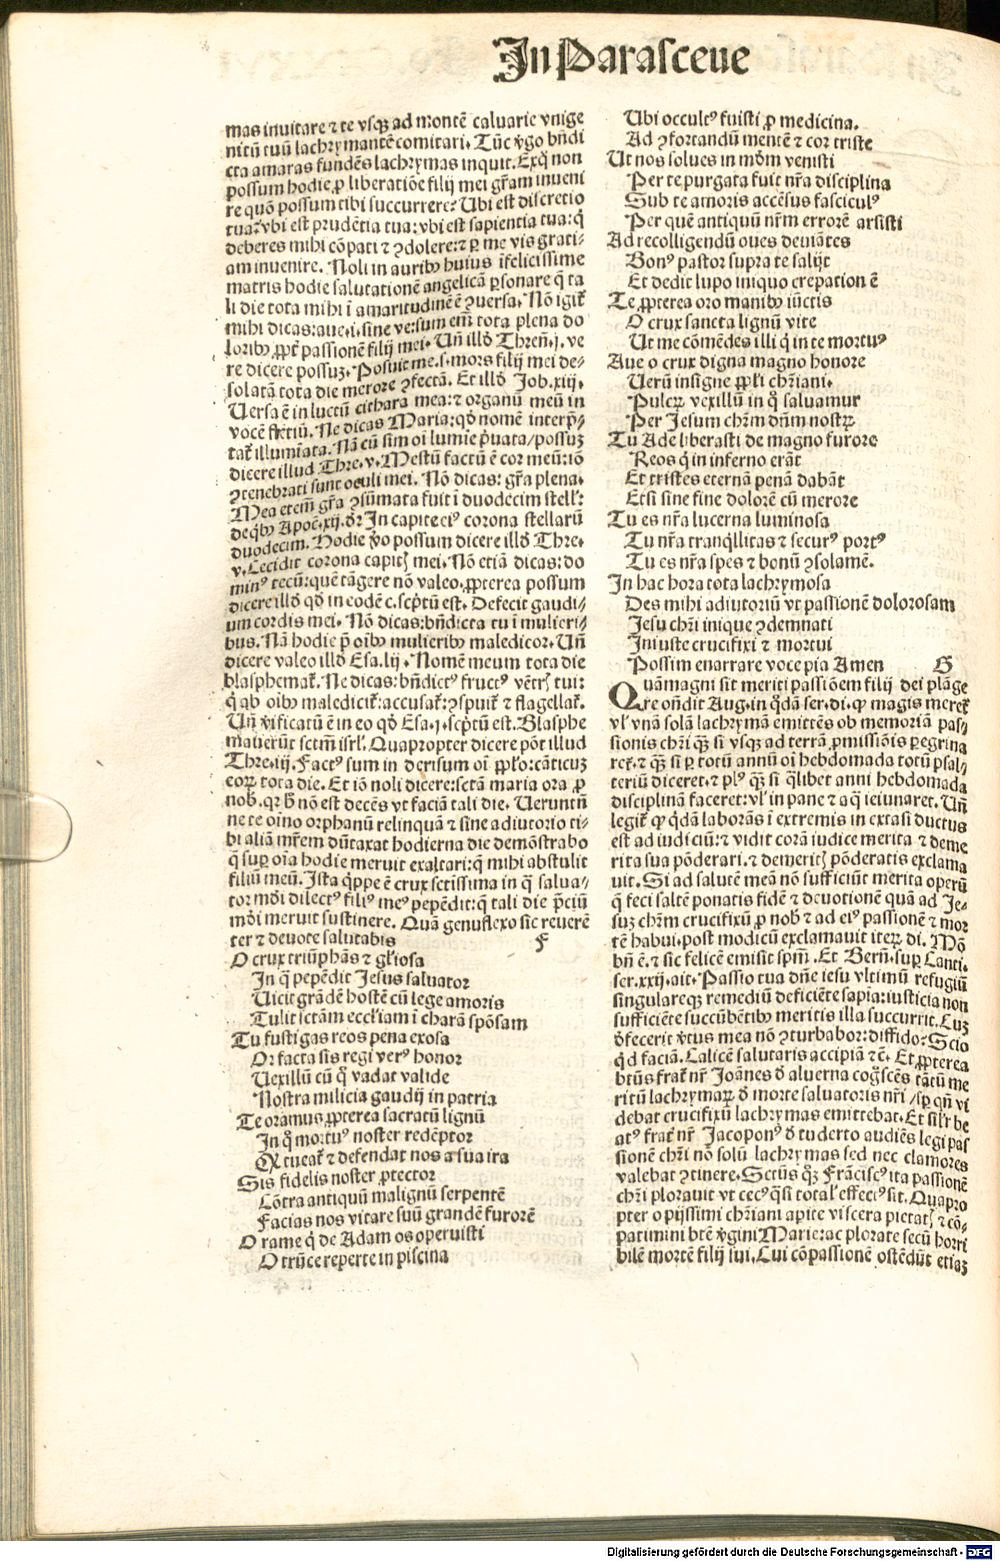 In Parasceue
mas inuitare ⁊ te vsqꝫ ad montē caluarie vnige
nitū tuū lachrymantē comitari. Tūc ỽgo bn̄di
cta amaras fundēs lachrymas inquit. Exq̄ non
possum hodie ꝓ liberatiōe filij mei gr̄am inueni
re quō possum tibi succurrere? Ubi est discretio
tua? vbi est prudētia tua: vbi est sapientia tua: q̄
deberes mihi cōpati ⁊ ꝯdolere: ⁊ ꝑ me vis grati-
am inuenire. Noli in auribꝰ huius īfelicissime
matris hodie salutationē angelicā ꝑsonare q̄ ta
li die tota mihi ī amaritudinē ē ꝯuersa. Nō igit̄
mihi dicas: aue. i. sine ve: sum em̄ tota plena do
loribꝰ ꝓpt̄ passionē filij mei. Un̄ illd̄ Thren̄. j. ve
re dicere possuꝫ. Posuit me. s. mors filij mei de-
solatā tota die merore ꝯfectā. Et illd̄ Job. xxx.
Uersa ē in luctū cithara mea: ⁊ organū meū in
vocē flētiū. Ne dicas Maria: qd̄ nomē interp̄-
tat̄ illumiata. Nā cū sim oī lumīe p̄uata/possuꝫ
dicere illud Thre. v. Mestū factū ē cor meū: iō
ꝯtenebrati sunt oculi mei. Nō dicas: gr̄a plena.
Mea etem̄ gr̄a ꝯsūmata fuit ī duodecim stell̄:
deq̄bꝰ Apoc̄. xij. dr̄: In capite eiꝰ corona stellarū
duodecim. Hodie ỽo possum dicere illd̄ Thre.
v. Cecidit corona capitꝭ mei. Nō etiā dicas: do
minꝰ tecū: quē tāgere nō valeo. ꝓpterea possum
dicere illd̄ qd̄ in eodē c. scp̄tū est. Defecit gaudi-
um cordis mei. Nō dicas: bn̄dicta tu ī mulieri-
bus. Nā hodie p̄ oībꝰ mulieribꝰ maledicor. Un̄
dicere valeo illd̄ Esa. lij. Nomē meum tota die
blasphemat̄. Ne dicas: bn̄dictꝰ fructꝰ vētrꝭ tui:
q̄ ab oībꝰ maledicit̄: accusat̄: ꝯspuit̄ ⁊ flagellat̄.
Un̄ ỽificatū ē in eo qd̄ Esa. j. scp̄tū est. Blasphe
mauerūt sctm̄ isrl̄. Quapropter dicere pōt illud
Thre. iij. Factꝰ sum in derisum oī ꝓplo: cāticuꝫ
eoꝝ tota die. Et iō noli dicere: sctā maria ora ꝓ
nob̄. qr h̄ nō est decēs vt faciā tali die. Ueruntn̄
ne te oīno orphanū relinquā ⁊ sine adiutorio ti-
bi aliā mr̄em dūtaxat hodierna die demōstrabo
q̄ suꝑ oīa hodie meruit exaltari: q̄ mihi abstulit
filiū meū. Ista q̄ppe ē crux sctissima in q̄ salua-
tor mōi dilectꝰ filiꝰ meꝰ pepēdit: q̄ tali die p̄ciū
mōi meruit sustinere. Quā genuflexo sic reuerē
ter ⁊ deuote salutabis F
O crux triūphās ⁊ gl̄iosa
In q̄ pepēdit Jesus saluator
Uicit grādē hostē cū lege amoris
Tulit ictām eccl̄iam ī charā spōsam
Tu fustigas reos pena exosa
Or facta sis regi verꝰ honor
Uexillū cū q̄ vadat valide
Nostra milicia gaudij in patria
Te oramus ꝓpterea sacratū lignū
In q̄ mortuꝰ noster redēptor
Qꝫ tueat̄ ⁊ defendat nos a sua ira
Sis fidelis noster ꝓtector
Cōtra antiquū malignū serpentē
Facias nos vitare suū grandē furorē
O rame q̄ de Adam os operuisti
O trūce reperte in piscina
Ubi occultꝰ fuisti ꝓ medicina.
Ad ꝯfortandū mentē ⁊ cor triste
Ut nos solues in mōm venisti
Per te purgata fuit nr̄a disciplina
Sub te amoris accēsus fasciculꝰ
Per quē antiquū nr̄m errorē arsisti
Ad recolligendū oues deuiātes
Bonꝰ pastor supra te salijt
Et dedit lupo iniquo crepationē
Te ꝓpterea oro manibꝰ iūctis
O crux sancta lignū vite
Ut me cōmēdes illi q̄ in te mortuꝰ
Aue o crux digna magno honore
Uerū insigne ꝓpl̄i chr̄iani.
Pulcꝝ vexillū in q̄ saluamur
Per Jesum chr̄m dn̄m nostꝝ
Tu Ade liberasti de magno furore
Reos q̄ in inferno erāt
Et tristes eternā penā dabāt
Etsi sine fine dolorē cū merore
Tu es nr̄a lucerna luminosa
Tu nr̄a tranq̄llitas ⁊ securꝰ portꝰ
Tu es nr̄a spes ⁊ bonū ꝯsolamē.
In hac hora tota lachrymosa
Des mihi adiutoriū vt passionē dolorosam
Jesu chr̄i inique ꝯdemnati
Iniuste crucifixi ⁊ mortui
Possim enarrare voce pia Amen G
Quāmagni sit meriti passiōem filij dei plāge
re on̄dit Aug. in q̄dā ser. di. ꝙ magis meret̄
vl̓ vnā solā lachrymā emittēs ob memoriā pas-
sionis chr̄i qꝫ si vsqꝫ ad terrā ꝓmissiōis ꝑegrina
ret̄. ⁊ qꝫ si ꝑ totū annū oī hebdomada totū psal-
teriū diceret. ⁊ plꝰ qꝫ si q̄libet anni hebdomada
disciplinā faceret: vl̓ in pane ⁊ aq̄ ieiunaret. Un̄
legit̄ ꝙ q̄dā laborās ī extremis in extasi ductus
est ad iudiciū: ⁊ vidit corā iudice merita ⁊ deme
rita sua pōderari. ⁊ demeritꝭ pōderatis exclama
uit. Si ad salutē meā nō sufficiūt merita operū
q̄ feci saltē ponatis fidē ⁊ deuotionē quā ad Je-
suꝫ chr̄m crucifixū ꝓ nob̄ ⁊ ad eiꝰ passionē ⁊ mor
tē habui. post modicū exclamauit iteꝝ di. Mō
bn̄ ē. ⁊ sic felicē emisit spm̄. Et Bern̄. suꝑ Canti.
ser. xxij. ait. Passio tua dn̄e iesu vltimū refugiū
singulareqꝫ remediū deficiēte sapīa: iusticia non
sufficiēte succūbētibꝰ meritis illa succurrit. Cuꝫ
d̄fecerit ỽtus mea nō ꝯturbabor: diffido? Scio
q̄d faciā. Calicē salutaris accipiā ⁊c̄. Et ꝓpterea
btūs frat̄ nr̄ Joānes d̄ aluerna coḡscēs tātū me
ritū lachrymaꝝ d̄ morte saluatoris nr̄i / sꝑ qn̄ vi
debat crucifixū lachrymas emittebat. Et sil̓r be
atꝰ frat̄ nr̄ Jacoponꝰ d̄ tuderto audiēs legi pas
sionē chr̄i nō solū lachrymas sed nec clamores
valebat ꝯtinere. Sctūs qꝫ Frāciscꝰ ita passionē
chr̄i plorauit vt cecꝰ q̄si total̓r effectꝰ sit. Quapro
pter o pijssimi chr̄iani apite viscera pietatꝭ ⁊ cō-
patimini btē ỽgini Marie: ac plorate secū horri
bilē mortē filij sui. Cui cōpassionē ostēdūt etiaꝫ
Digitalisierung gefördert durch die Deutsche Forschungsgemeinschaft - DFG